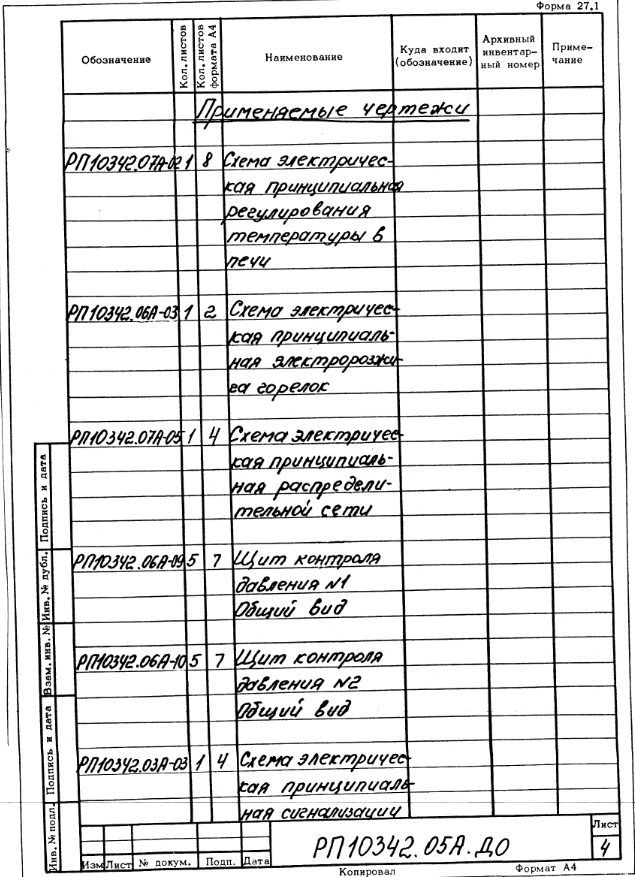 Форма 27.1
Обозначение Кол. листов Кол. листов формата А4 Наименование Куда входит (обозначение) Архивный инвентар-ный номер Приме-чание
Применяемые чертежи
РП10342.07А-02 1 8 Схема электричес-
кая принципиальная
регулирования
температуры в
печи
РП10342.06А-03 1 2 Схема электричес-
кая принципиаль-
ная электророзжи-
га горелок
РП10342.07А-05 1 4 Схема электричес-
кая принципиаль-
ная распредели-
тельной сети
РП10342.06А-09 5 7 Щит контроля
давления №1
Общий вид
РП10342.06А-10 5 7 Щит контроля
давления №2
Общий вид
РП10342.03А-03 1 4 Схема электричес-
кая принципиаль-
ная сигнализации
Инв. № подл. Подпись и дата Взам. инв. № Инв. № дубл. Подпись и дата
РП10342.05А.ДО
Лист
4
Изм Лист № докум. Подп. Дата
Копировал Формат А4